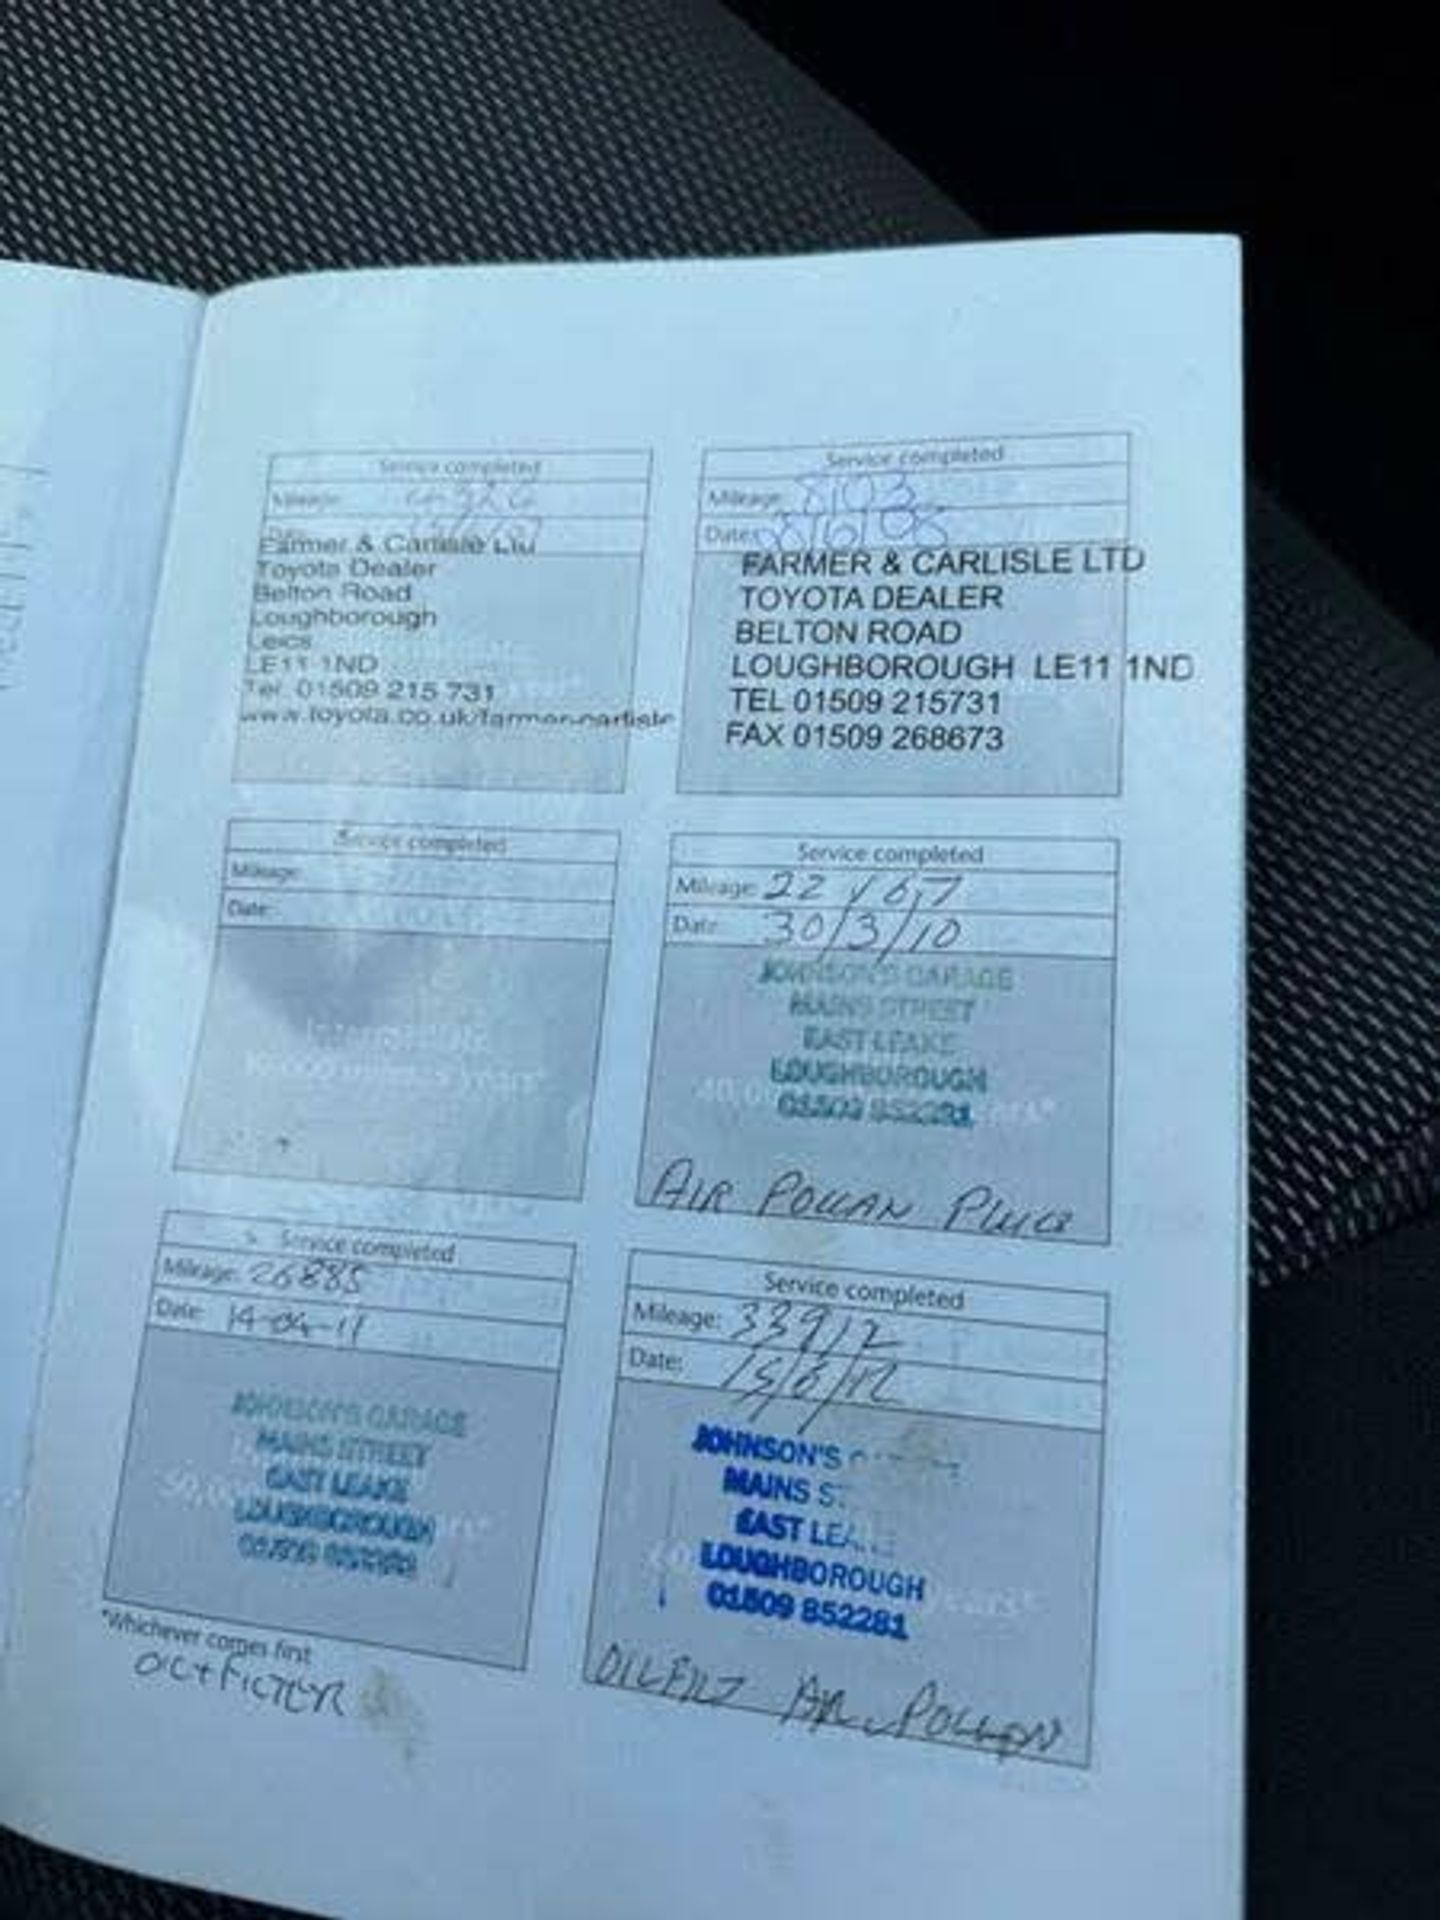 Service completed
Mileage:
Date:
Farmer & Carlisle Ltd
Toyota Dealer
Belton Road
Loughborough
Leics
LE11 1ND
Tel. 01509 215 731
www.toyota.co.uk/farmer-carlisle
Service completed
Mileage: 8103
Date:
FARMER & CARLISLE LTD
TOYOTA DEALER
BELTON ROAD
LOUGHBOROUGH LE11 1ND
TEL 01509 215731
FAX 01509 268673
Service completed
Mileage:
Date:
Service completed
Mileage: 22167
Date: 30/3/10
JOHNSON'S GARAGE
MAINS STREET
EAST LEAKE
LOUGHBOROUGH
01509 852281
AIR POLLAN PLUGS
Service completed
Mileage: 26885
Date: 14-04-11
JOHNSON'S GARAGE
MAINS STREET
EAST LEAKE
LOUGHBOROUGH
01509 852281
*Whichever comes first
OIL+FILTER
Service completed
Mileage: 33912
Date: 15/6/12
JOHNSON'S
MAINS
EAST LEAKE
LOUGHBOROUGH
01509 852281
OIL FILT AIR POLLON